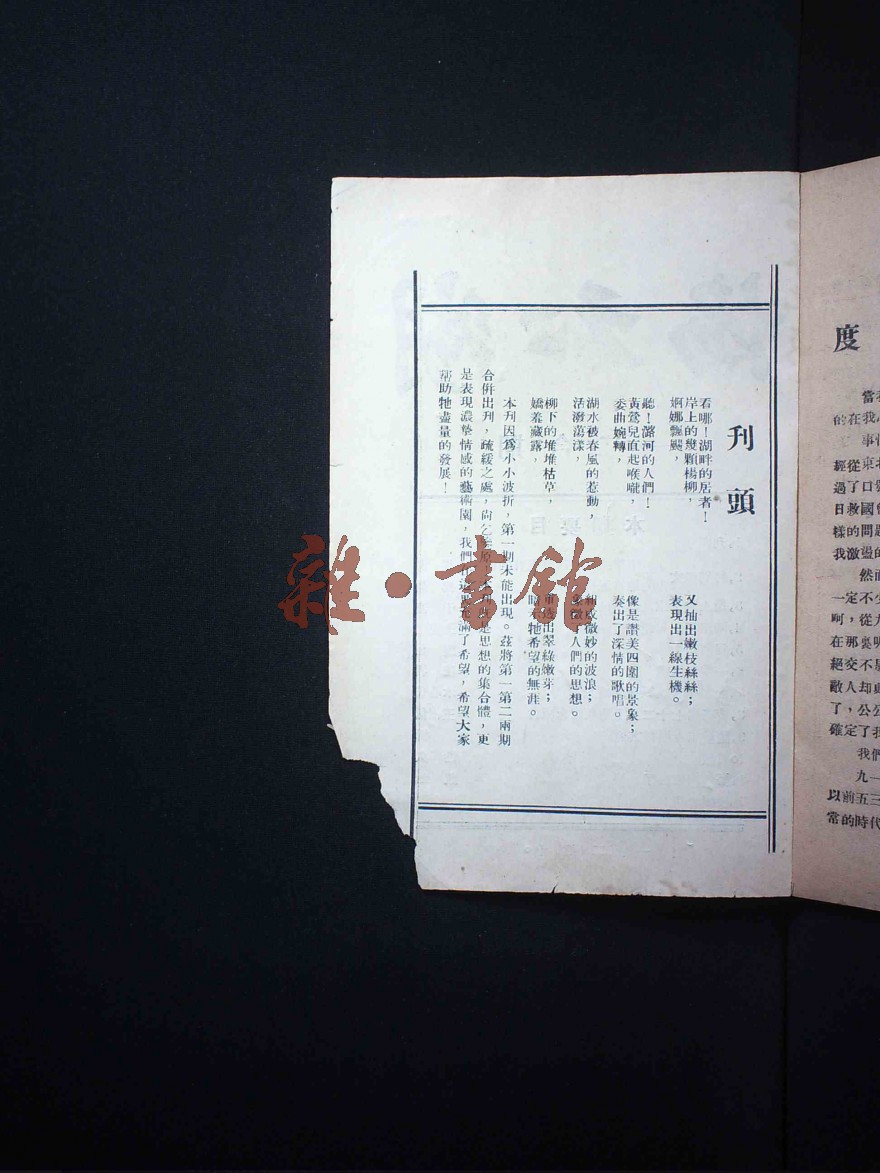 刊頭
看哪！湖畔的居者！
岸上的幾顆楊柳，
婀娜飄颺，
又抽出嫩枝絲絲；
表現出一線生機。
聽！潞河的人們！
黃鶯兒直起喉嚨，
委曲婉轉，
像是讚美四圍的景象；
奏出了深情的歌唱。
湖水被春風的惹動，
活潑蕩漾，
微妙的波浪；
人們的思想。
柳下的堆堆枯草，
嬌羞藏露，
出翠綠嫩芽；
牠希望的無涯。
本刊因爲小小波折，第一期未能出現。茲將第一第二兩期
合併出刊，疏緩之處，尚乞原是思想的集合體，更
是表現濃摯情感的藝術園，我們滿了希望，希望大家
幫助牠盡量的發展！
度
當我
的在我
事情
經從東北
過了口
日救國
樣的問題
我激盪的
然而
一定不
呵，從
在那裏
絕交不
敵人却
了，公公
確定了我
我們
九一
以前五三
常的時代
雜·書館